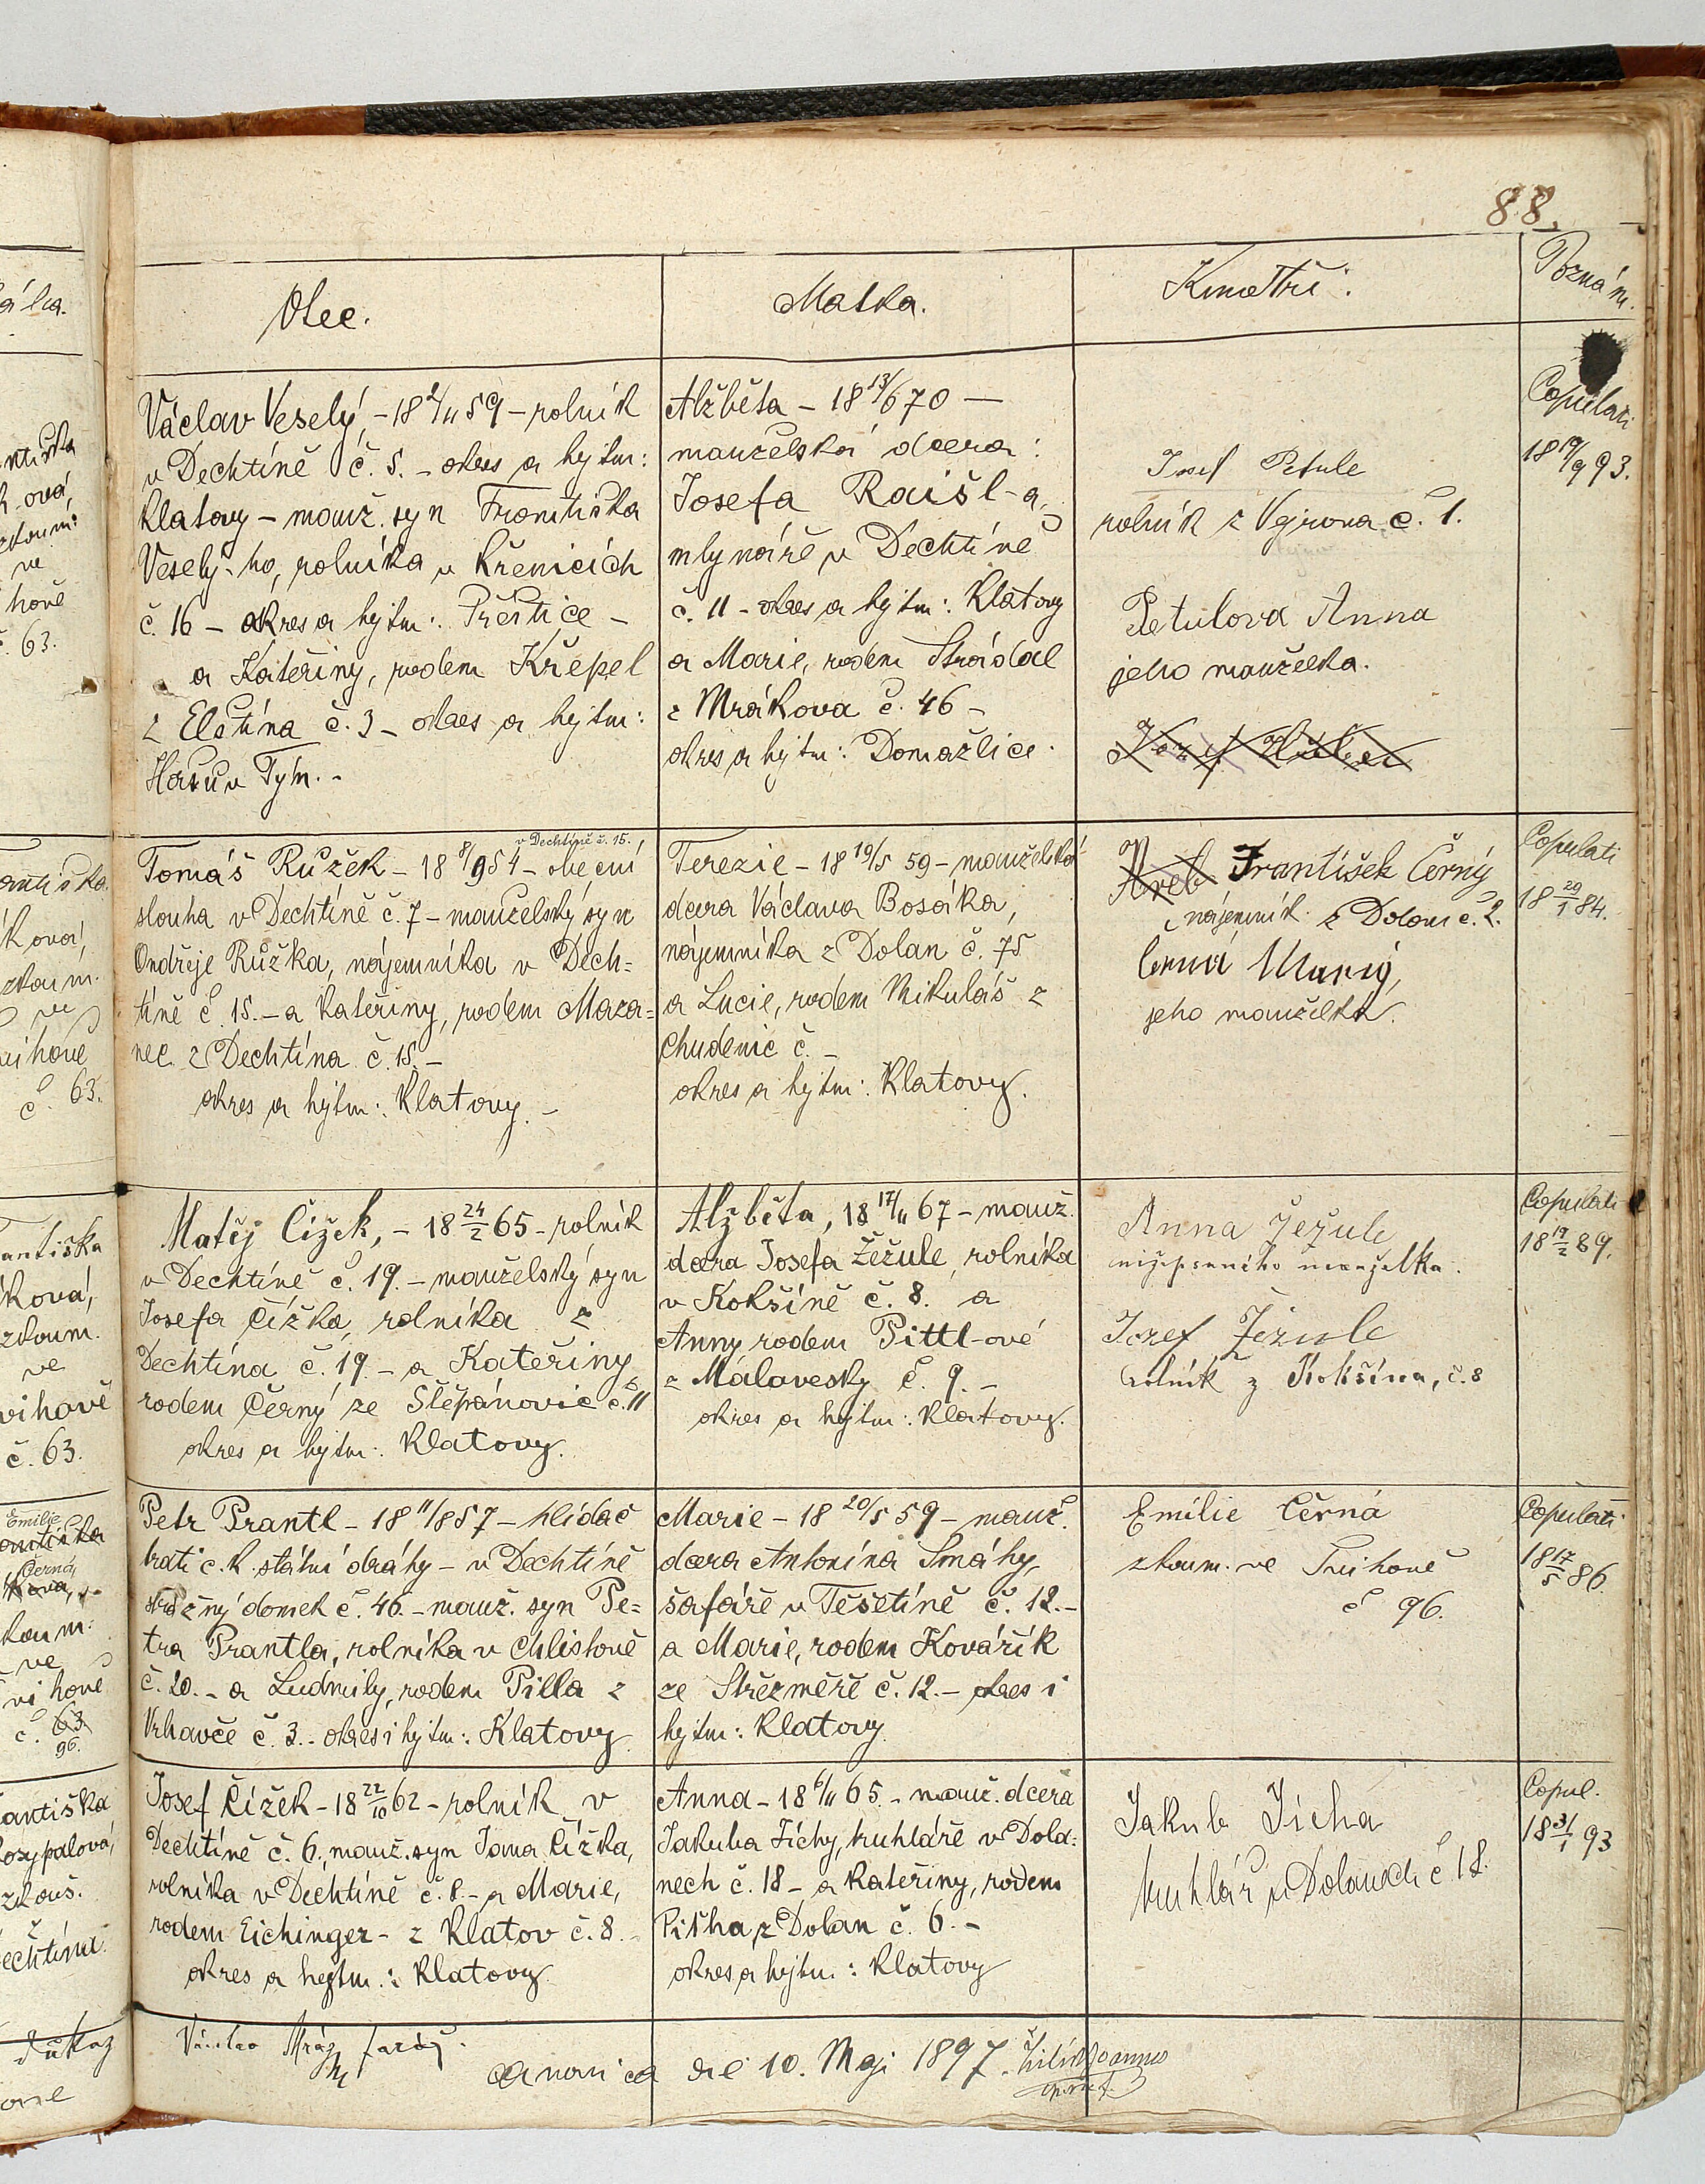 88.
Otec.
Matka.
Kmotři.
Poznám.
Václav Veselý, - 18 2/11 59 - rolník
v Dechtíně č. 5. - okres a hejtm:
Klatovy - manž. syn Františka
Veselý-ho, rolníka v Křenicích
č. 16 - okres a hejtm: Přeštice -
a Kateřiny, rodem Křepel
z Elštína č. 3 - okres a hejtm:
Horšův Týn. -
Alžběta - 18 13/6 70 -
manželská dcera:
Josefa Raišl-a,
mlynáře v Dechtíně
č. 11 - okres a hejtm: Klatovy
a Marie, rodem Strádal
z Mrákova č. 46 -
okres a hejtm: Domažlice.
Josef Petule
rolník z Vejrova č. 1.
Petulova Anna
jeho manželka.
Josef
Copulati
18 /9 93.
v Dechtíně č. 15.
Tomáš Růžek - 18 8/9 54 - obecní
slouha v Dechtíně č. 7 - manželský syn
Ondřeje Růžka, nájemníka v Dech=
tíně č. 15. - a Kateřiny, rodem Maza=
nec z Dechtína č. 15. -
okres a hejtm: Klatovy. -
Terezie - 18 19/5 59 - manželská
dcera Václava Bosáka,
nájemníka z Dolan č. 75
a Lucie, rodem Mikuláš z
Chudenic č. -
okres a hejtm: Klatovy.
František Černý
nájemník z Dolan č. 2.
Černá Marij,
jeho manželka.
Copulati
18 29/1 84.
Matěj Čížek, - 18 24/2 65 - rolník
v Dechtíně č. 19. - manželský syn
Josefa Čížka, rolníka z
Dechtína č. 19. - a Kateřiny
rodem Černý ze Štěpánovic č. 11
okres a hejtm: Klatovy.
Alžběta, 18 17/11 67 - manž.
dcera Josefa Žežule, rolníka
v Kokšíně č. 8. a
Anny rodem Pittl-ové
z Málavesky č. 9. -
okres a hejtm: Klatovy.
Anna Žežule
nížepsaného manželka.
Jozef Žežule
rolník z Kokšína, č. 8
Copulati
18 19/2 89.
Petr Prantl - 18 11/8 57 - hlídač
trati c. k. státní dráhy - v Dechtíně
strážný domek č. 46. - manž. syn Pe=
tra Prantla, rolníka v Chlistově
č. 20. - a Ludmily, rodem Pilla z
Vrhavče č. 3. - okres i hejtm: Klatovy
Marie - 18 20/5 59 - manž.
dcera Antonína Smáhy,
šafáře v Těšetíně č. 12. -
a Marie, rodem Kovářík
ze Střezměře č. 12. - okres i
hejtm: Klatovy.
Emílie Černá
zkoum. ve Švihově
č 96.
Copulati
18 17/5 86.
Josef Čížek - 18 22/10 62 - rolník v
Dechtíně č. 6., manž. syn Jana Čížka,
rolníka v Dechtíně č. 8. - a Marie,
rodem Eichinger - z Klatov č. 8. -
okres a hejtm.: Klatovy.
Anna - 18 6/11 65. - manž. dcera
Jakuba Jíchy, truhláře v Dola=
nech č. 18 - a Kateřiny, rodem
Pitha, z Dolan č. 6. -
okres a hejtm.: Klatovy
Jakub Jícha
truhlář v Dolanech č 18.
Copul.
18 31/1 93
Václav Mráz farář.
canonica die 10. Maji 1897.